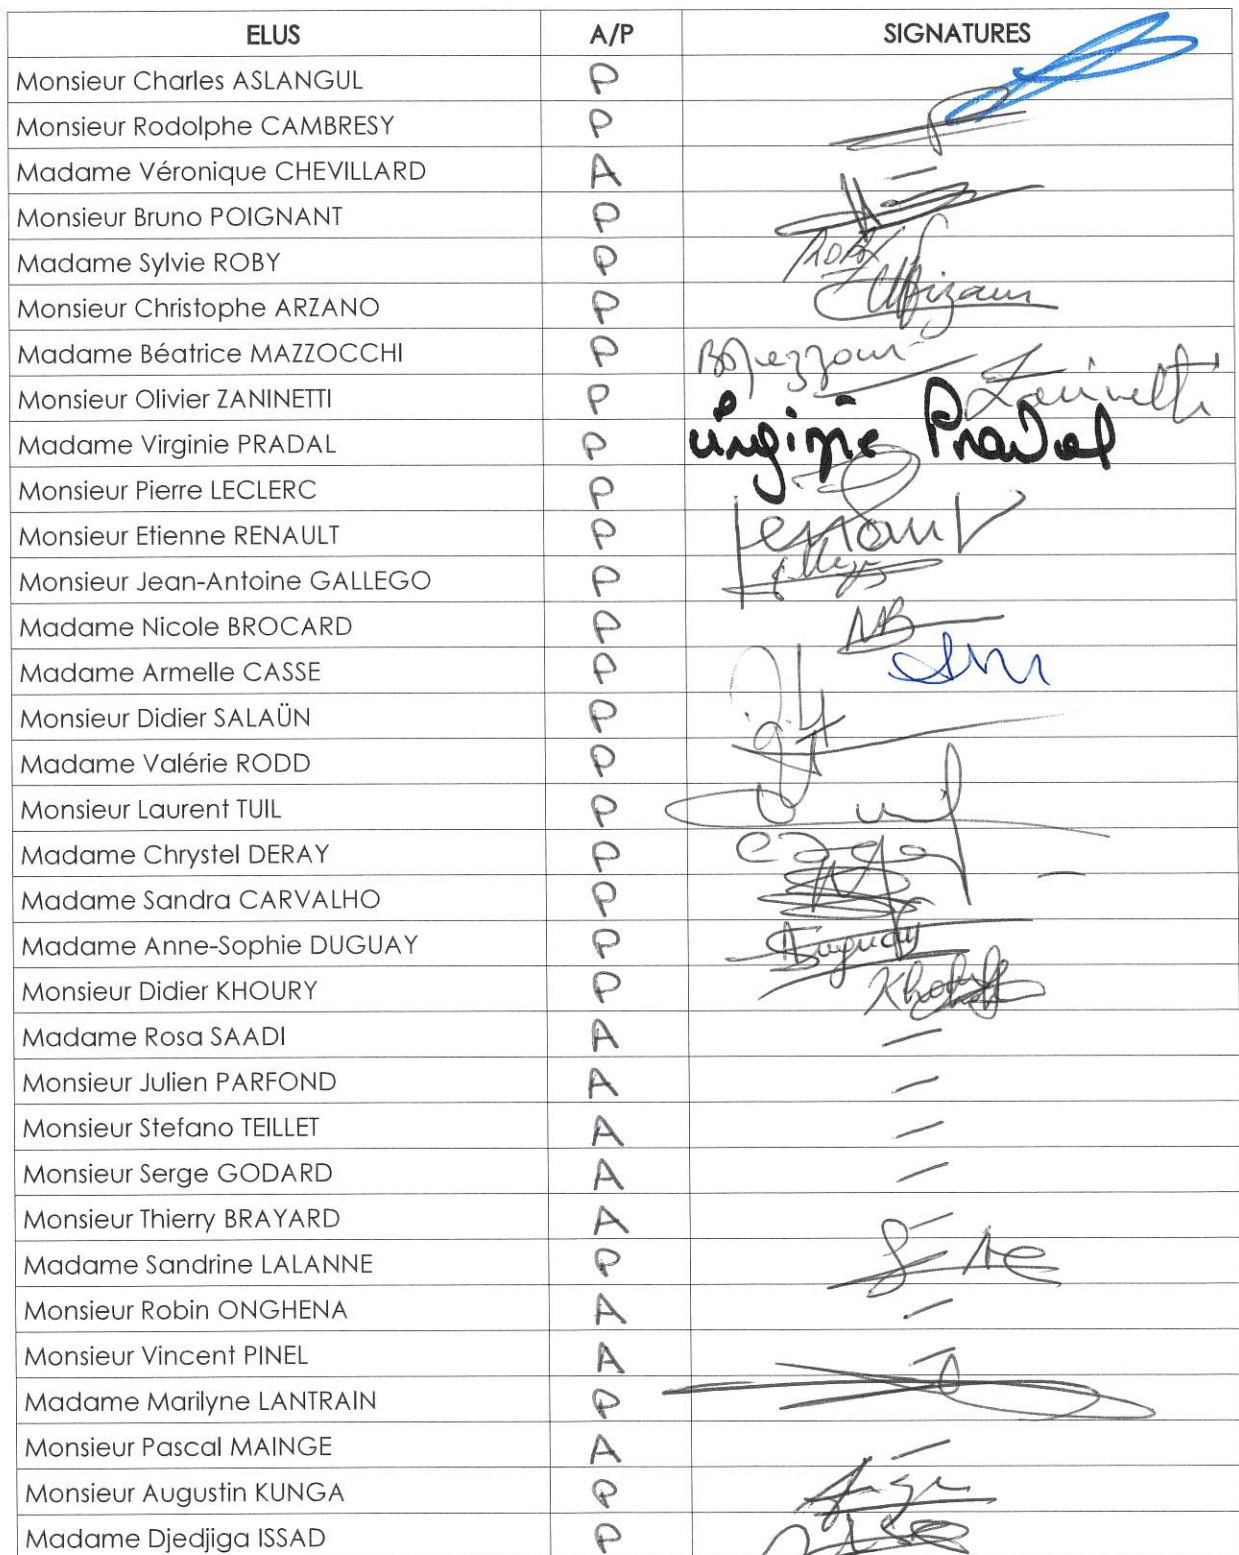 ELUS A/P SIGNATURES
Monsieur Charles ASLANGUL P
Monsieur Rodolphe CAMBRESY P
Madame Véronique CHEVILLARD A —
Monsieur Bruno POIGNANT P
Madame Sylvie ROBY P
Monsieur Christophe ARZANO P
Madame Béatrice MAZZOCCHI P
Monsieur Olivier ZANINETTI P Zaninetti
Madame Virginie PRADAL P Virginie Pradal
Monsieur Pierre LECLERC P
Monsieur Etienne RENAULT P
Monsieur Jean-Antoine GALLEGO P
Madame Nicole BROCARD P NB
Madame Armelle CASSE P
Monsieur Didier SALAÜN P
Madame Valérie RODD P
Monsieur Laurent TUIL P
Madame Chrystel DERAY P
Madame Sandra CARVALHO P
Madame Anne-Sophie DUGUAY P Duguay
Monsieur Didier KHOURY P Khoury
Madame Rosa SAADI A —
Monsieur Julien PARFOND A —
Monsieur Stefano TEILLET A —
Monsieur Serge GODARD A —
Monsieur Thierry BRAYARD A —
Madame Sandrine LALANNE P
Monsieur Robin ONGHENA A —
Monsieur Vincent PINEL A —
Madame Marilyne LANTRAIN P
Monsieur Pascal MAINGE A —
Monsieur Augustin KUNGA P
Madame Djedjiga ISSAD P